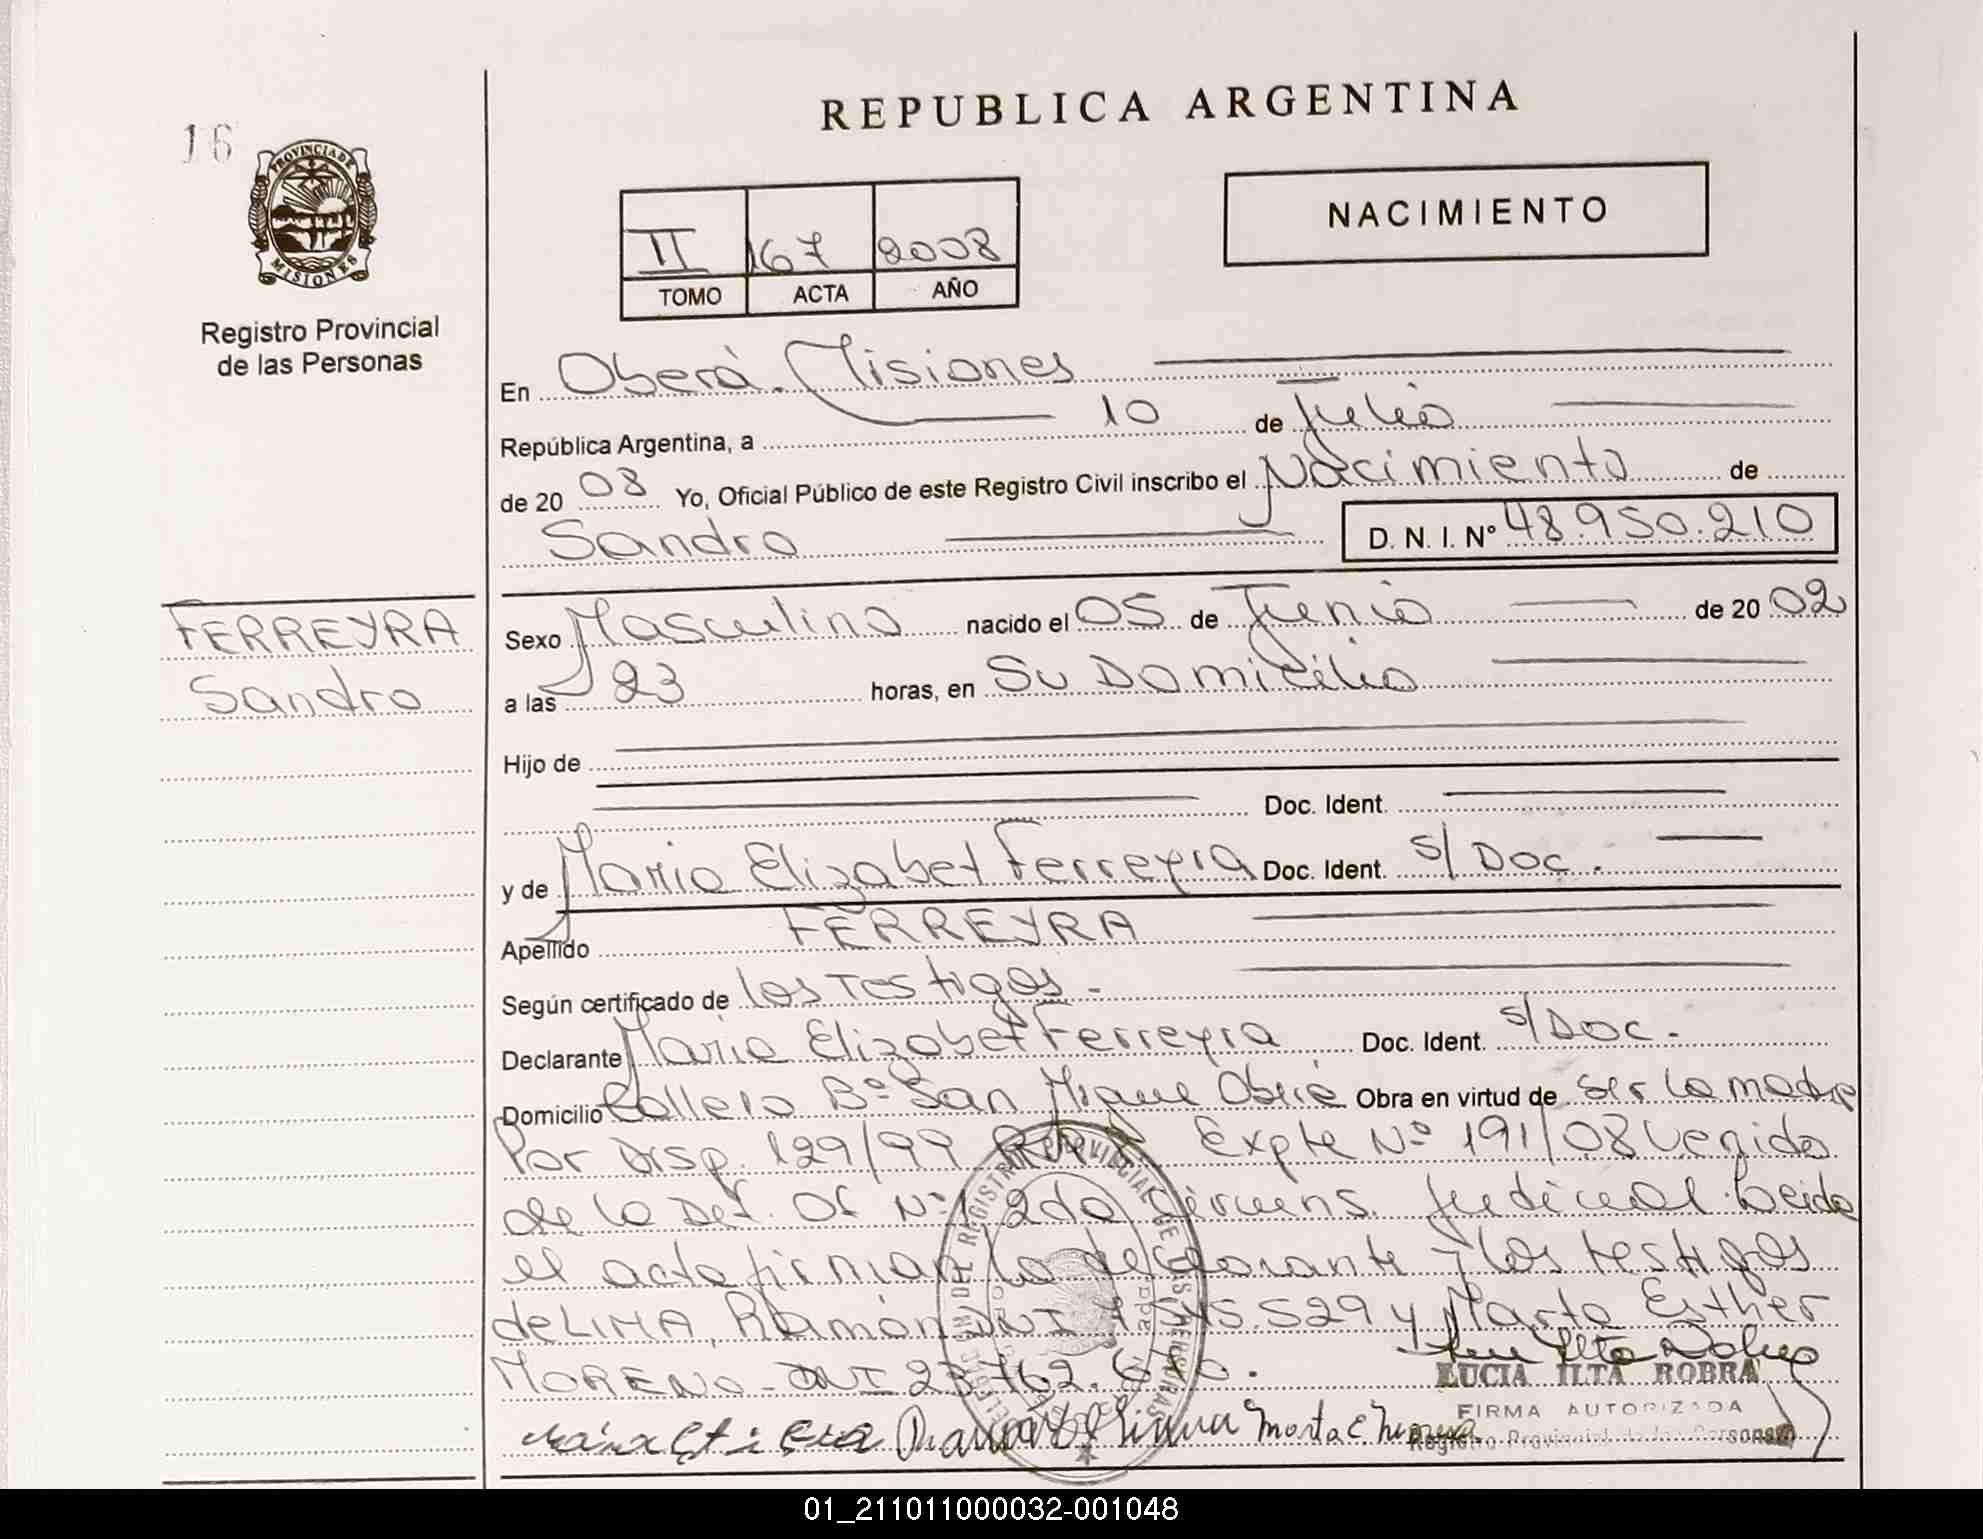 REPUBLICA ARGENTINA
16
PROVINCIA DE
MISIONES
Registro Provincial
de las Personas
NACIMIENTO
II 167 2008
TOMO ACTA AÑO
En Oberá. Misiones
República Argentina, a 10 de Julio
de 20 08 Yo, Oficial Público de este Registro Civil inscribo el Nacimiento de
Sandro D. N. I. Nº 48.950.210
FERREYRA
Sandro
Sexo Masculino nacido el 05 de Junio de 20 02
a las 23 horas, en Su Domicilio
Hijo de
Doc. Ident.
y de Maria Elizabet Ferreyra Doc. Ident. S/Doc.
Apellido FERREYRA
Según certificado de los Testigos.
Declarante Maria Elizabet Ferreyra Doc. Ident. S/Doc.
Domicilio Bº San Obra en virtud de ser la madre
Por Disp. 129/99 Expte Nº 191/08 venido
de la Def. Of Nº1 2da Circuns. Judicial. Leida
el acta firman la declarante y los testigos
de LIMA, Ramón DNI y Marta Esther
MORENO - DNI 23.762.
LUCIA ILTA ROBRA
FIRMA AUTORIZADA
Registro Provincial de las Personas
01_211011000032-001048